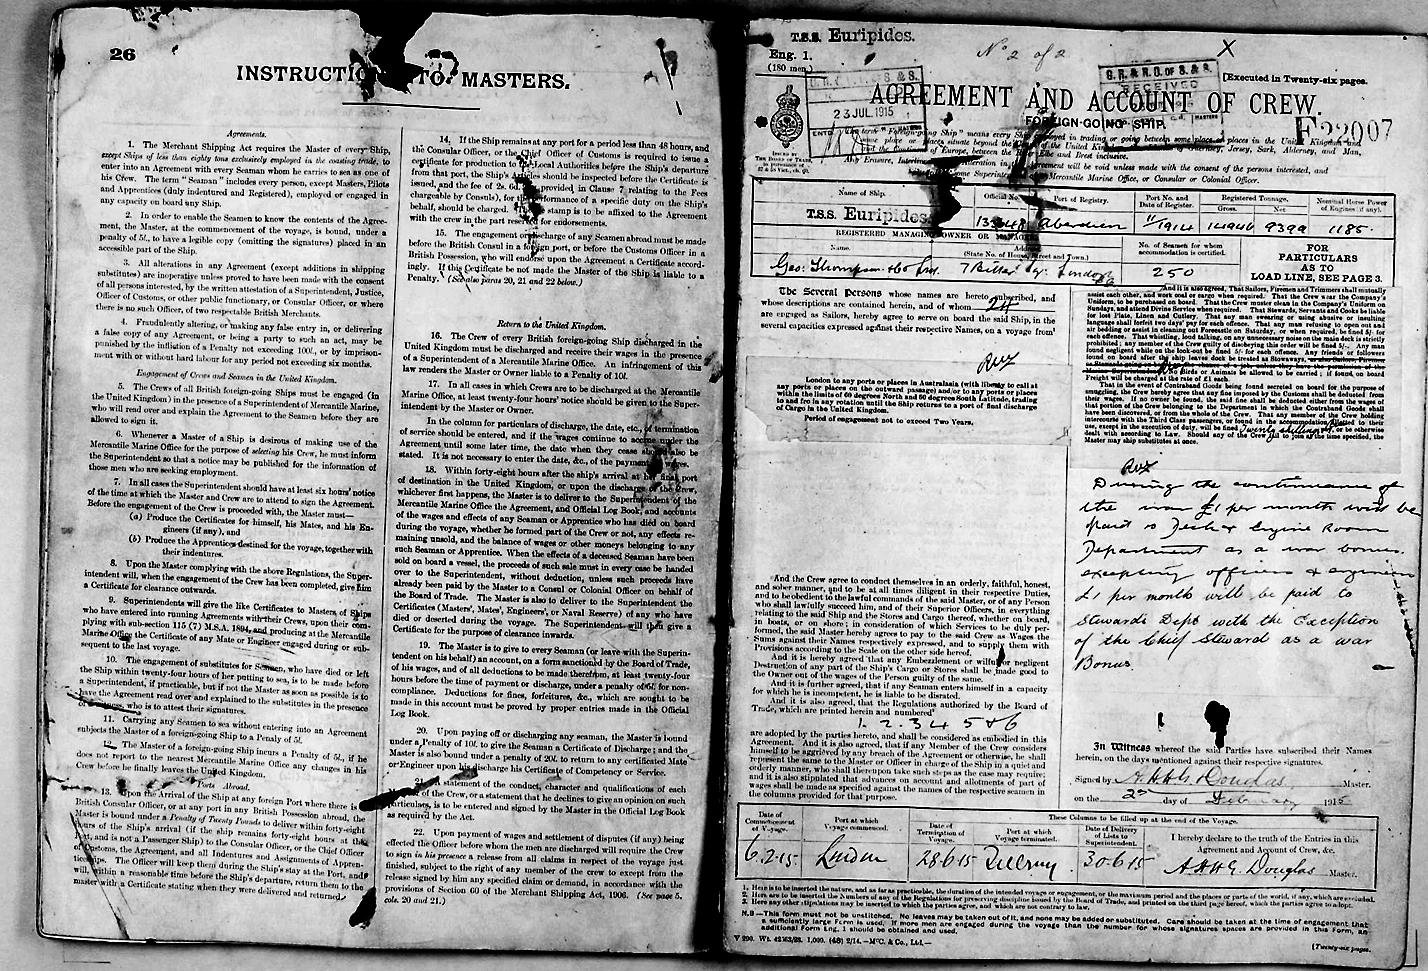 26
INSTRUCTIONS TO MASTERS.
Agreements.
1. The Merchant Shipping Act requires the Master of every Ship,
except Ships of less than eighty tons exclusively employed in the coasting trade, to
enter into an Agreement with every Seaman whom he carries to sea as one of
his Crew. The term "Seaman" includes every person, except Masters, Pilots
and Apprentices (duly indentured and Registered), employed or engaged in
any capacity on board any Ship.
2. In order to enable the Seamen to know the contents of the Agree-
ment, the Master, at the commencement of the voyage, is bound, under a
penalty of 5l., to have a legible copy (omitting the signatures) placed in an
accessible part of the Ship.
3. All alterations in any Agreement (except additions in shipping
substitutes) are inoperative unless proved to have been made with the consent
of all persons interested, by the written attestation of a Superintendent, Justice,
Officer of Customs, or other public functionary, or Consular Officer, or where
there is no such Officer, of two respectable British Merchants.
4. Fraudulently altering, or making any false entry in, or delivering
a false copy of any Agreement, or being a party to such an act, may be
punished by the infliction of a Penalty not exceeding 100l., or by imprison-
ment with or without hard labour for any period not exceeding six months.
Engagement of Crews and Seamen in the United Kingdom.
5. The Crews of all British foreign-going Ships must be engaged (in
the United Kingdom) in the presence of a Superintendent of Mercantile Marine,
who will read over and explain the Agreement to the Seamen before they are
allowed to sign it.
6. Whenever a Master of a Ship is desirous of making use of the
Mercantile Marine Office for the purpose of selecting his Crew, he must inform
the Superintendent so that a notice may be published for the information of
those men who are seeking employment.
7. In all cases the Superintendent should have at least six hours' notice
of the time at which the Master and Crew are to attend to sign the Agreement.
Before the engagement of the Crew is proceeded with, the Master must—
(a) Produce the Certificates for himself, his Mates, and his En-
gineers (if any), and
(b) Produce the Apprentices destined for the voyage, together with
their indentures.
8. Upon the Master complying with the above Regulations, the Super-
intendent will, when the engagement of the Crew has been completed, give him
a Certificate for clearance outwards.
9. Superintendents will give the like Certificates to Masters of Ships
who have entered into running Agreements with their Crews, upon their com-
plying with sub-section 115 (7) M.S.A. 1894, and producing at the Mercantile
Marine Office the Certificate of any Mate or Engineer engaged during or sub-
sequent to the last voyage.
10. The engagement of substitutes for Seamen, who have died or left
the Ship within twenty-four hours of her putting to sea, is to be made before
a Superintendent, if practicable, but if not the Master as soon as possible is to
have the Agreement read over and explained to the substitutes in the presence
of witnesses, who is to attest their signatures.
11. Carrying any Seaman to sea without entering into an Agreement
subjects the Master of a foreign-going Ship to a Penalty of 5l.
12. The Master of a foreign-going Ship incurs a Penalty of 5l., if he
does not report to the nearest Mercantile Marine Office any changes in his
Crew before he finally leaves the United Kingdom.
Ports Abroad.
13. Upon the Arrival of the Ship at any foreign Port where there is
British Consular Officer, or at any port in any British Possession abroad, the
Master is bound under a Penalty of Twenty Pounds to deliver within forty-eight
hours of the Ship's arrival (if the ship remains forty-eight hours at the
Port, and is not a Passenger Ship) to the Consular Officer, or the Chief Officer
of Customs, the Agreement, and all Indentures and Assignments of Appren-
ticeships. The Officer will keep them during the Ship's stay at the Port, and
will, within a reasonable time before the Ship's departure, return them to the
master with a Certificate stating when they were delivered and returned.
14. If the Ship remains at any port for a period less than 48 hours, and
the Consular Officer, or the Chief Officer of Customs is required to issue a
certificate for production to the Local Authorities before the Ship's departure
from that port, the Ship's Articles should be inspected before the Certificate is
issued, and the fee of 2s. 6d. provided, in Clause 7 relating to the Fees
chargeable by Consuls), for the performance of a specific duty on the Ship's
behalf, should be charged. stamp is to be affixed to the Agreement
with the crew in the part reserved for endorsements.
15. The engagement or discharge of any Seaman abroad must be made
before the British Consul in a foreign port, or before the Customs Officer in a
British Possession, who will endorse upon the Agreement a Certificate accord-
ingly. If this Certificate be not made the Master of the Ship is liable to a
Penalty. (See also paras 20, 21 and 22 below.)
Return to the United Kingdom.
16. The Crew of every British foreign-going Ship discharged in the
United Kingdom must be discharged and receive their wages in the presence
of a Superintendent of a Mercantile Marine Office. An infringement of this
law renders the Master or Owner liable to a Penalty of 10l.
17. In all cases in which Crews are to be discharged at the Mercantile
Marine Office, at least twenty-four hours' notice should be given to the Super-
intendent by the Master or Owner.
In the column for particulars of discharge, the date, etc., of termination
of service should be entered, and if the wages continue to accrue under the
Agreement until some later time, the date when they cease should also be
stated. It is not necessary to enter the date, &c., of the payment of wages.
18. Within forty-eight hours after the ship's arrival at her final port
of destination in the United Kingdom, or upon the discharge of the Crew,
whichever first happens, the Master is to deliver to the Superintendent of the
Mercantile Marine Office, the Agreement, and Official Log Book, and accounts
of the wages and effects of any Seaman or Apprentice who has died on board
during the voyage, whether he formed part of the Crew or not, any effects re-
maining unsold, and the balance of wages or other moneys belonging to any
such Seaman or Apprentice. When the effects of a deceased Seaman have been
sold on board a vessel, the proceeds of such sale must in every case be handed
over to the Superintendent, without deduction, unless such proceeds have
already been paid by the Master to a Consul or Colonial Officer on behalf of
the Board of Trade. The Master is also to deliver to the Superintendent the
Certificates (Masters', Mates', Engineers', or Naval Reserve) of any who have
died or deserted during the voyage. The Superintendent will then give a
Certificate for the purpose of clearance inwards.
19. The Master is to give to every Seaman (or leave with the Superin-
tendent on his behalf) an account, on a form sanctioned by the Board of Trade,
of his wages, and of all deductions to be made therefrom, at least twenty-four
hours before the time of payment or discharge, under a penalty of 5l. for non-
compliance. Deductions for fines, forfeitures, &c., which are sought to be
made in this account must be proved by proper entries made in the Official
Log Book.
20. Upon paying off or discharging any seaman, the Master is bound
under a Penalty of 10l. to give the Seaman a Certificate of Discharge; and the
Master is also bound under a penalty of 20l. to return to any certificated Mate
or Engineer upon his discharge his Certificate of Competency or Service.
21. A statement of the conduct, character and qualifications of each
of the Crew, or a statement that he declines to give an opinion on such
particulars, is to be entered and signed by the Master in the Official Log Book
as required by the Act.
22. Upon payment of wages and settlement of disputes (if any) being
effected the Officer before whom the men are discharged will require the Crew
to sign in his presence a release from all claims in respect of the voyage just
finished, subject to the right of any member of the crew to except from the
release signed by him any specified claim or demand, in accordance with the
provisions of Section 60 of the Merchant Shipping Act, 1906. (See page 5,
cols. 20 and 21.)
T.S.S. Euripides.
Nº 2 of 2
X
Eng. 1.
(180 men.)
[Executed in Twenty-six pages.
G. R. & R. O. OF S. & S.
RECEIVED
23 JUL 1915
AGREEMENT AND ACCOUNT OF CREW.
FOREIGN-GOING SHIP.
E22007
ISSUED BY
THE BOARD OF TRADE
The term "Foreign-going Ship" means every Ship employed in trading or going between some place or places in the United Kingdom and
some place or places situate beyond the Coasts of the United Kingdom, Jersey, Sark, Alderney, and Man,
and the Continent of Europe, between the River Elbe and Brest inclusive.
Any Erasure, Interlineation, or Alteration in this Agreement will be void unless made with the consent of the persons interested, and
Mercantile Marine Office, or Consular or Colonial Officer.
Name of Ship.
Official No.
Port of Registry.
Port No. and
Date of Register.
Registered Tonnage.
Gross.
Net.
Nominal Horse Power
of Engines (if any).
T.S.S. Euripides.
Aberdeen
11/1914
14946
9399
1185.
REGISTERED MANAGING OWNER OR MANAGER.
Name.
Address
(State No. of House, Street and Town.)
No. of Seamen for whom
accommodation is
certified.
FOR
PARTICULARS
AS TO
LOAD LINE, SEE PAGE 3.
Geo: Thompson & Co Ltd.
7 Billiter Sq. London
250
The Several Persons whose names are hereto subscribed, and
whose descriptions are contained herein, and of whom 24
are engaged as Sailors, hereby agree to serve on board the said Ship, in the
several capacities expressed against their respective Names, on a voyage from
London to any ports or places in Australasia (with liberty to call at
any ports or places on the outward passage) and/or to any ports or places
within the limits of 60 degrees North and 60 degrees South Latitude, trading
to and fro in any rotation until the Ship returns to a port of final discharge
of Cargo in the United Kingdom.
Period of engagement not to exceed Two Years.
And the Crew agree to conduct themselves in an orderly, faithful, honest,
and sober manner, and to be at all times diligent in their respective Duties,
and to be obedient to the lawful commands of the said Master, or of any Person
who shall lawfully succeed him, and of their Superior Officers, in everything
relating to the said Ship and the Stores and Cargo thereof, whether on board,
in boats, or on shore; in consideration of which Services to be duly per-
formed, the said Master hereby agrees to pay to the said Crew as Wages the
Sums against their Names respectively expressed, and to supply them with
Provisions according to the Scale on the other side hereof.
And it is hereby agreed that any Embezzlement or wilful or negligent
Destruction of any part of the Ship's Cargo or Stores shall be made good to
the Owner out of the Wages of the Person guilty of the same.
And it is further agreed, that if any Seaman enters himself in a capacity
for which he is incompetent, he is liable to be disrated.
And it is also agreed, that the Regulations authorized by the Board of
Trade, which are printed herein and numbered
1. 2. 3 4 5 & 6
are adopted by the parties hereto, and shall be considered as embodied in this
Agreement. And it is also agreed, that if any Member of the Crew considers
himself to be aggrieved by any breach of the Agreement or otherwise, he shall
represent the same to the Master or Officer in charge of the Ship in a quiet and
orderly manner, who shall thereupon take such steps as the case may require;
and it is also stipulated that advances on account and allotments of part of
wages shall be made as specified against the names of the respective seamen in
the columns provided for that purpose.
And it is also agreed, That Sailors, Firemen and Trimmers shall mutually
assist each other, and work coal or cargo when required. That the Crew wear the Company's
Uniform, to be purchased on board. That the Crew must clean in the Company's Uniform on
Sundays, and attend Divine Service when required. That Stewards, Servants and Cooks be liable
for lost Plate, Linen and Cutlery. That any man swearing or using abusive or insulting
language shall forfeit two days' pay for each offence. That any man refusing to open out and
air bedding, assist in cleaning out Forecastle on Saturday, or when required, be fined 5/- for
each offence. That whistling, loud talking, on any unnecessary noise on the main deck is strictly
prohibited; any member of the Crew guilty of disobeying this order will be fined 5/-. Any man
found negligent while on the look-out be fined 5/- for each offence. Any friends of followers
found on board after the ship leaves dock be treated as Stowaways.
No Birds or Animals be allowed to be carried; if found, on board
Freight will be charged at the rate of £1 each.
That in the event of Contraband Goods being found secreted on board for the purpose of
smuggling, the Crew hereby agree that any fine imposed by the Customs shall be deducted
from their wages. If no owner be found, the said fine shall be deducted either from the wages of
that portion of the Crew belonging to the Department in which the Contraband Goods shall
have been discovered, or from the whole of the Crew. That any member of the Crew holding
intercourse with the Third Class passengers, or found in the accommodation allotted to their
use, except in the execution of duty, will be fined Twenty shillings, or be otherwise
dealt with according to Law. Should any of the Crew fail to join at the time specified, the
Master may ship substitutes at once.
During the continuance of
the war £1 per month will be
paid to Deck & Engine Room
Department as a war bonus.
excepting officers & engineers
£1 per month will be paid to
Stewards Dept with the Exception
of the Chief Steward as a war
Bonus
In Witness whereof the said Parties have subscribed their Names
herein, on the days mentioned against their respective signatures.
Signed by A H H G Douglas Master.
on the 2nd day of February 1915
These Columns to be filled up at the end of the Voyage.
Date of
Commencement
of Voyage.
Port at which
Voyage commenced.
Date of
Termination of
Voyage.
Port at which
Voyage terminated.
Date of Delivery
of Lists to
Superintendent.
I hereby declare to the truth of the Entries in this
Agreement and Account of Crew, &c.
6.2.15
London
28.6.15
30.6.15
A H H G. Douglas Master.
1. Here is to be inserted the nature, and as far as practicable, the duration of the intended voyage or engagement, or the maximum period and the places or parts of the world, if any, which are excluded.
2. Here are to be inserted the Numbers of any of the Regulations for preserving discipline issued by the Board of Trade, and printed on the third page hereof, which the parties agree to adopt.
3. Here any other stipulations may be inserted to which the parties agree, and which are not contrary to law.
N.B.—This form must not be unstitched. No leaves may be taken out of it, and none may be added or substituted. Care should be taken at the time of engagement that
a sufficiently large Form is used. If more men are engaged during the voyage than the number for whose signatures spaces are provided in this Form, an
additional Form Eng. 1 should be obtained and used.
V 290. Wt. 42163/23. 1,000. (48) 2/14.—McC. & Co., Ltd.—
[Twenty-six pages.